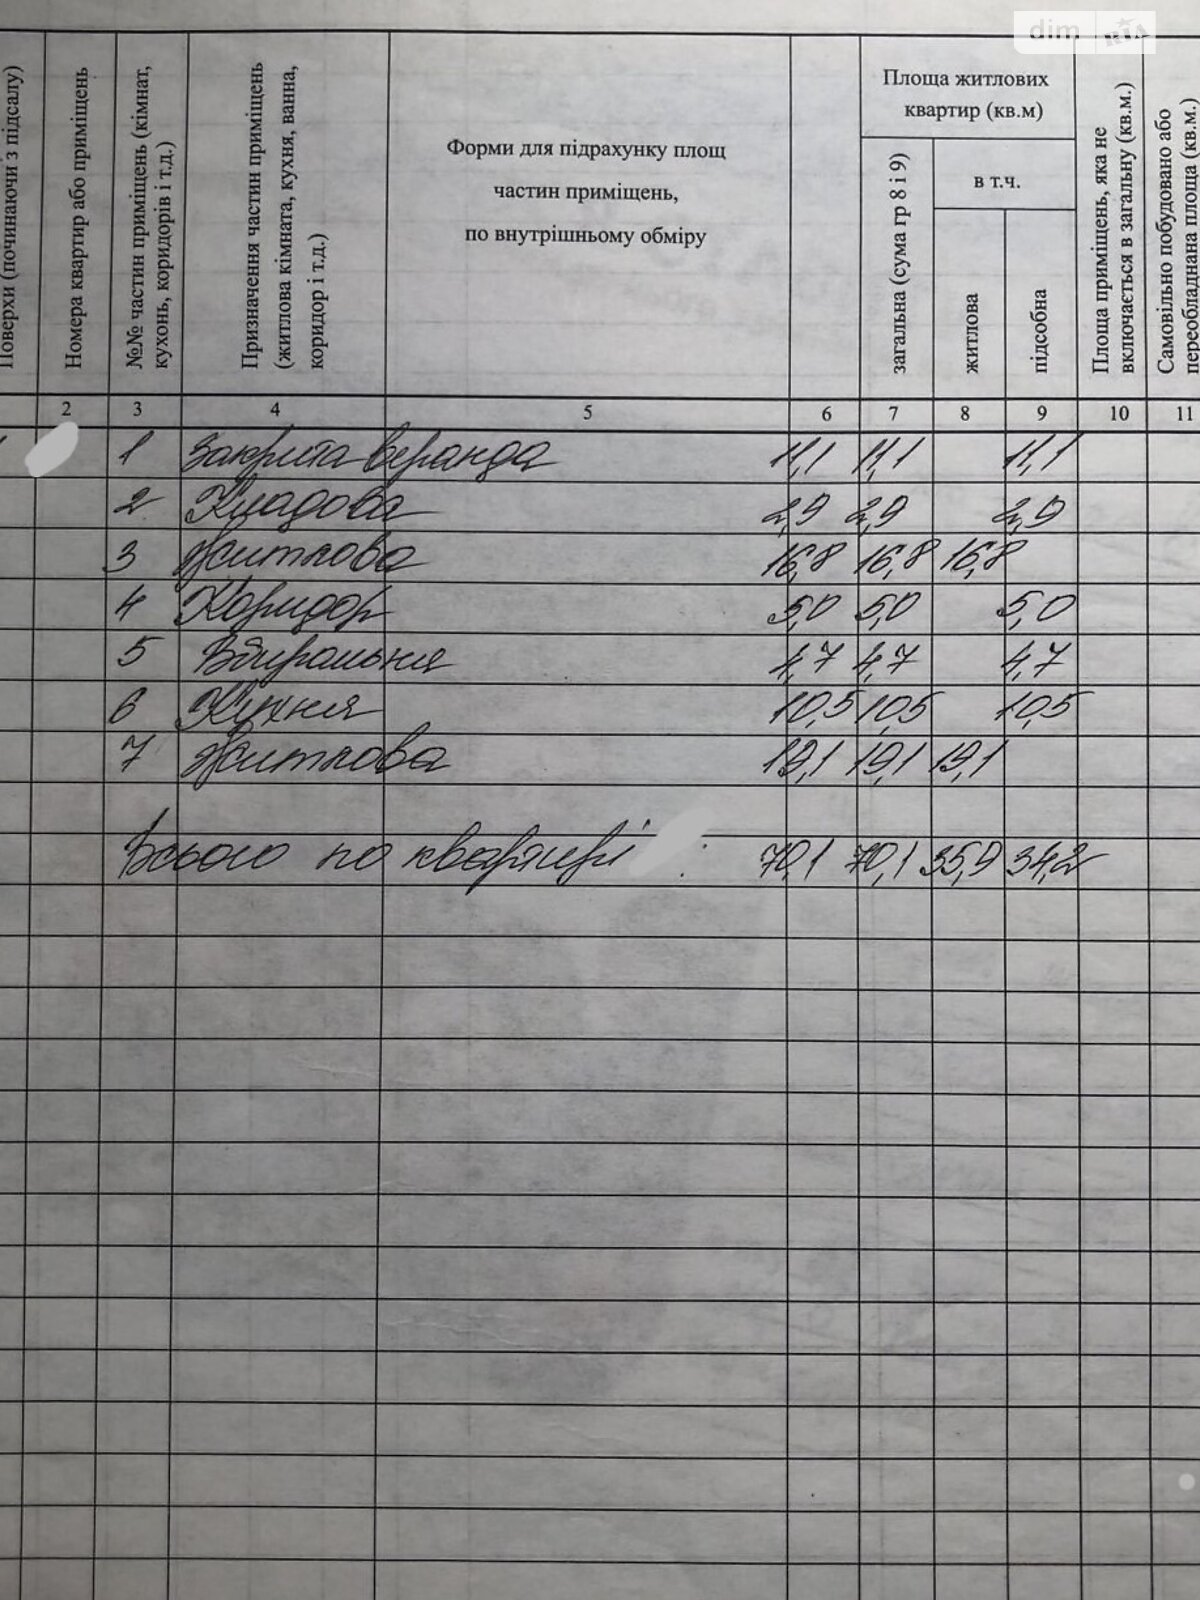 dim RIA
Поверхи (починаючи з підсалу)
Номера квартир або приміщень
№№ частин приміщень (кімнат,
кухонь, коридорів і т.д.)
Призначення частин приміщень
(житлова кімната, кухня, ванна,
коридор і т.д.)
Форми для підрахунку площ
частин приміщень,
по внутрішньому обміру
Площа житлових
квартир (кв.м)
загальна (сума гр 8 і 9)
в т.ч.
житлова
підсобна
Площа приміщень, яка не
включається в загальну (кв.м.)
Самовільно побудовано або
переобладнана площа (кв.м.)
2 3 4 5 6 7 8 9 10 11
1 Закрита веранда 11,1 11,1 11,1
2 Кладова 2,9 2,9 2,9
3 Житлова 16,8 16,8 16,8
4 Коридор 5,0 5,0 5,0
5 Вбиральня 4,7 4,7 4,7
6 Кухня 10,5 10,5 10,5
7 Житлова 19,1 19,1 19,1
Всього по квартирі : 70,1 70,1 35,9 34,2